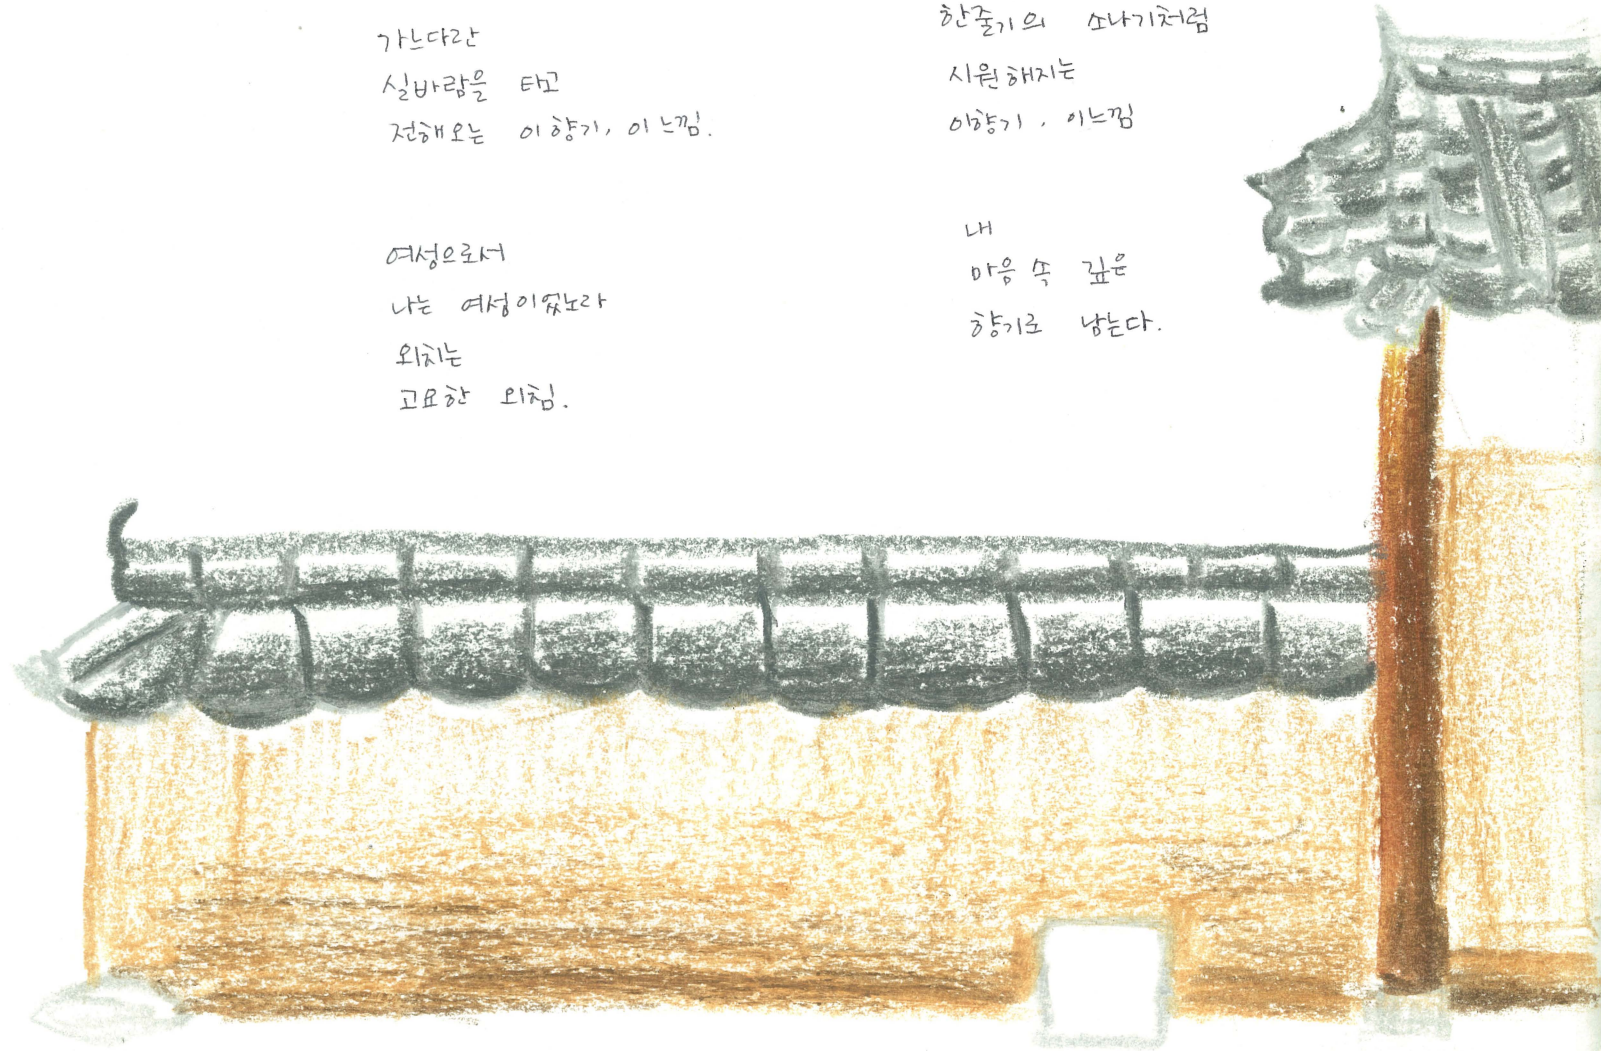 가느다란
실바람을 타고
전해오는 이 향기, 이 느낌.
여성으로서
나는 여성이었노라
외치는
고요한 외침.
한줄기의 소나기처럼
시원해지는
이향기, 이느낌
내
마음 속 깊은
향기로 남는다.